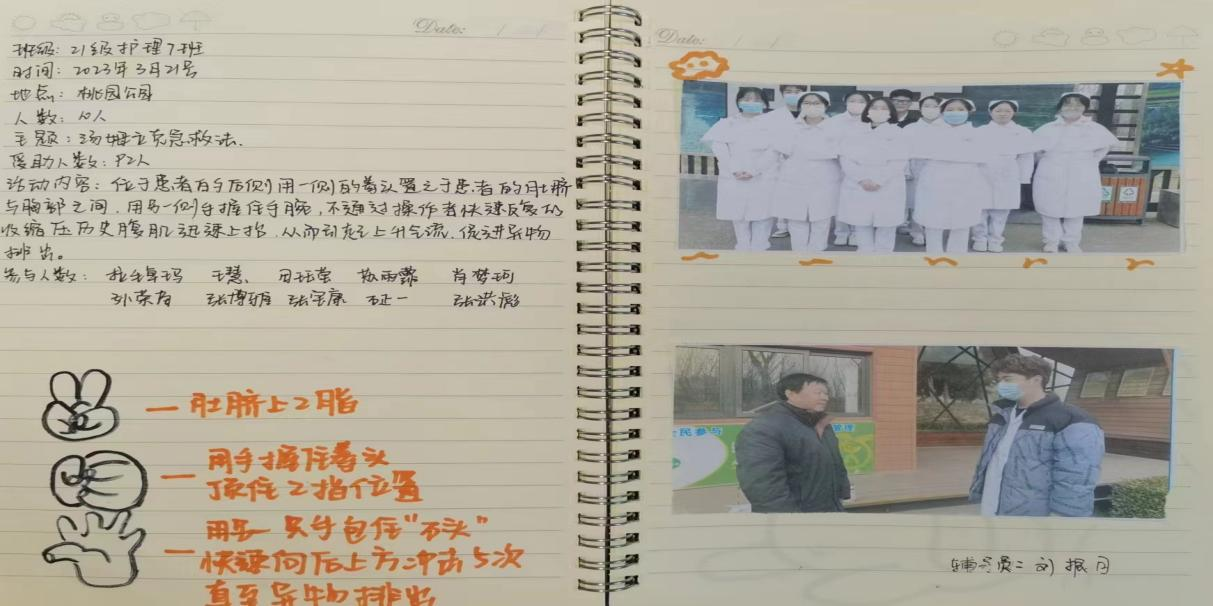 Date: / /
班级: 21级护理7班
时间: 2023年3月21号
地点: 桃园公园
人数: 10人
主题: 汤姆立克急救法.
援助人数: 92人
活动内容: 位于患者的身后侧用一侧的拳头置之于患者的肚脐
与胸部之间, 用另一侧手握住手腕, 不通过操作者快速反复的
收缩压历史腹肌迅速上抬, 从而引起上升气流, 促进异物
排出。
参与人数: 王慧 肖梦珂
张宝康 张洪彪
一 肚脐上2脂
一 用手握住拳头
顶住2指位置
一 用另一只手包住“石头”
快速向后上方冲击5次
直至异物排出
Date: / /
全民参与
管理
辅导员: 刘振月